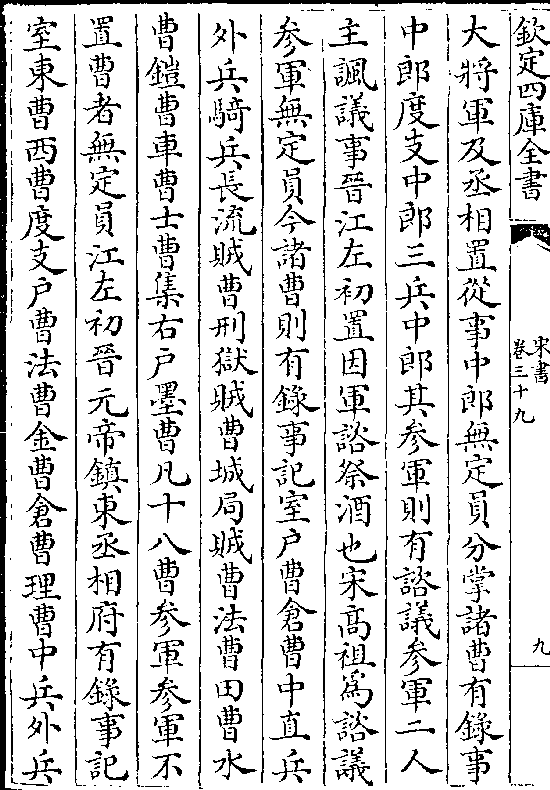 欽定四庫全書
宋書
卷三十九
九
大將軍及丞相置從事中郎無定員分掌諸曹有錄事
中郎度支中郎三兵中郎其参軍則有諮議参軍二人
主諷議事晉江左初置因軍諮祭酒也宋髙祖為諮議
参軍無定員今諸曹則有錄事記室户曹倉曹中直兵
外兵騎兵長流賊曹刑獄賊曹城局賊曹法曹田曹水
曹鎧曹車曹士曹集右户墨曹凡十八曹参軍参軍不
置曹者無定員江左初晉元帝鎮東丞相府有錄事記
室東曹西曹度支户曹法曹金曹倉曹理曹中兵外兵